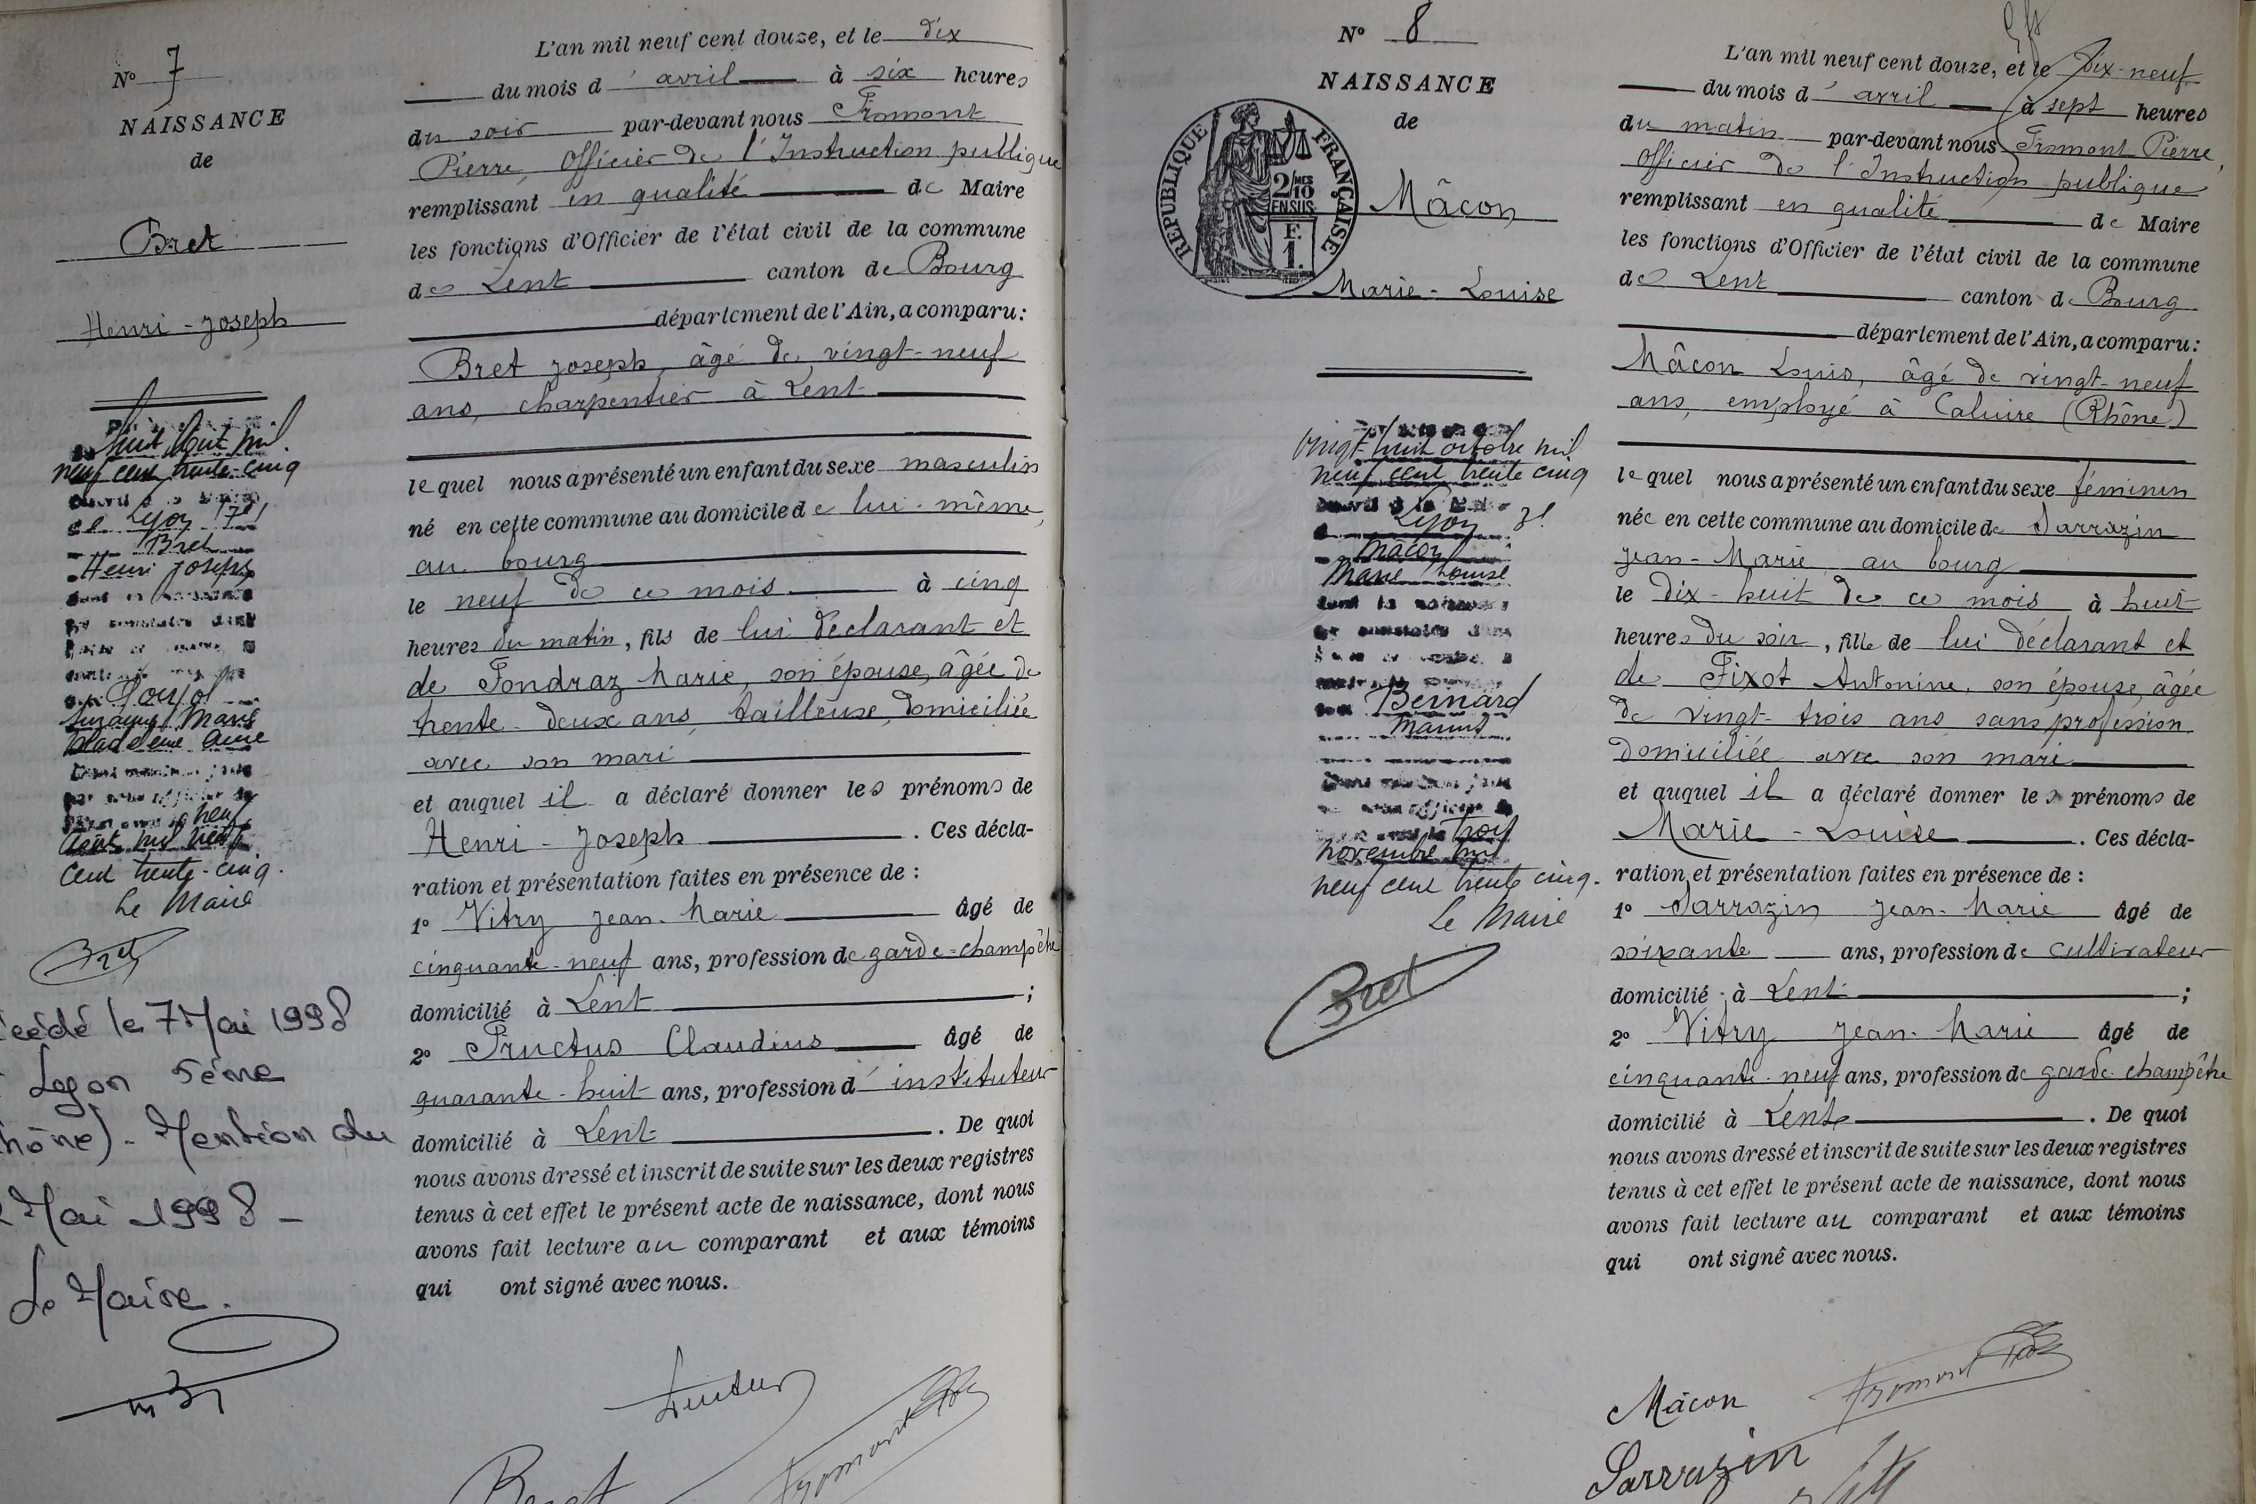 N° 7
NAISSANCE
de
Bret
Henri-Joseph
huit Août mil
neuf cent trente-cinq
Lyon 7e
Bret
Henri Joseph
dont la naissance
Poujol
Suzanne Marie
Madeleine Anne
neuf
Août mil neuf
cent trente-cinq.
Le Maire
Bret
écédé le 7 Mai 1998
Lyon 5ème
hône) - Mention du
Mai 1998 -
Le Maire.
L'an mil neuf cent douze, et le dix
du mois d'avril à six heures
du soir par-devant nous Fromont
Pierre, Officier de l'Instruction publique
remplissant en qualité de Maire
les fonctions d'Officier de l'état civil de la commune
de Lent canton de Bourg
département de l'Ain, a comparu:
Bret Joseph, âgé de vingt-neuf
ans, charpentier à Lent
lequel nous a présenté un enfant du sexe masculin
né en cette commune au domicile de lui-même,
au bourg
le neuf de ce mois à cinq
heures du matin, fils de lui déclarant et
de Fondraz Marie, son épouse, âgée de
trente-deux ans, tailleuse, domiciliée
avec son mari
et auquel il a déclaré donner les prénoms de
Henri-Joseph. Ces décla-
ration et présentation faites en présence de :
1° Vitry Jean-Marie âgé de
cinquante-neuf ans, profession de garde-champêtre
domicilié à Lent ;
2° Fructus Claudius âgé de
quarante-huit ans, profession d'instituteur
domicilié à Lent. De quoi
nous avons dressé et inscrit de suite sur les deux registres
tenus à cet effet le présent acte de naissance, dont nous
avons fait lecture au comparant et aux témoins
qui ont signé avec nous.
Fructus
Bret
Fromont
N° 8
NAISSANCE
de
RÉPUBLIQUE FRANÇAISE
2/10
EN SUS
F.
1.
Mâcon
Marie-Louise
vingt-huit octobre mil
neuf cent trente cinq
Lyon 3e
Mâcon
Marie Louise
dont la naissance
Bernard
Marius
trois
novembre mil
neuf cent trente cinq.
Le Maire
Bret
L'an mil neuf cent douze, et le dix-neuf
du mois d'avril à sept heures
du matin par-devant nous Fromont Pierre,
Officier de l'Instruction publique
remplissant en qualité de Maire
les fonctions d'Officier de l'état civil de la commune
de Lent canton de Bourg
département de l'Ain, a comparu:
Mâcon Louis, âgé de vingt-neuf
ans, employé à Caluire (Rhône)
lequel nous a présenté un enfant du sexe féminin
née en cette commune au domicile de Sarrazin
Jean-Marie, au bourg
le dix-huit de ce mois à huit
heures du soir, fille de lui déclarant et
de Fixot Antonine, son épouse, âgée
de vingt-trois ans, sans profession
domiciliée avec son mari
et auquel il a déclaré donner les prénoms de
Marie-Louise. Ces décla-
ration et présentation faites en présence de :
1° Sarrazin Jean-Marie âgé de
soixante ans, profession de cultivateur
domicilié à Lent ;
2° Vitry Jean-Marie âgé de
cinquante-neuf ans, profession de garde-champêtre
domicilié à Lent. De quoi
nous avons dressé et inscrit de suite sur les deux registres
tenus à cet effet le présent acte de naissance, dont nous
avons fait lecture au comparant et aux témoins
qui ont signé avec nous.
Mâcon
Fromont
Sarrazin